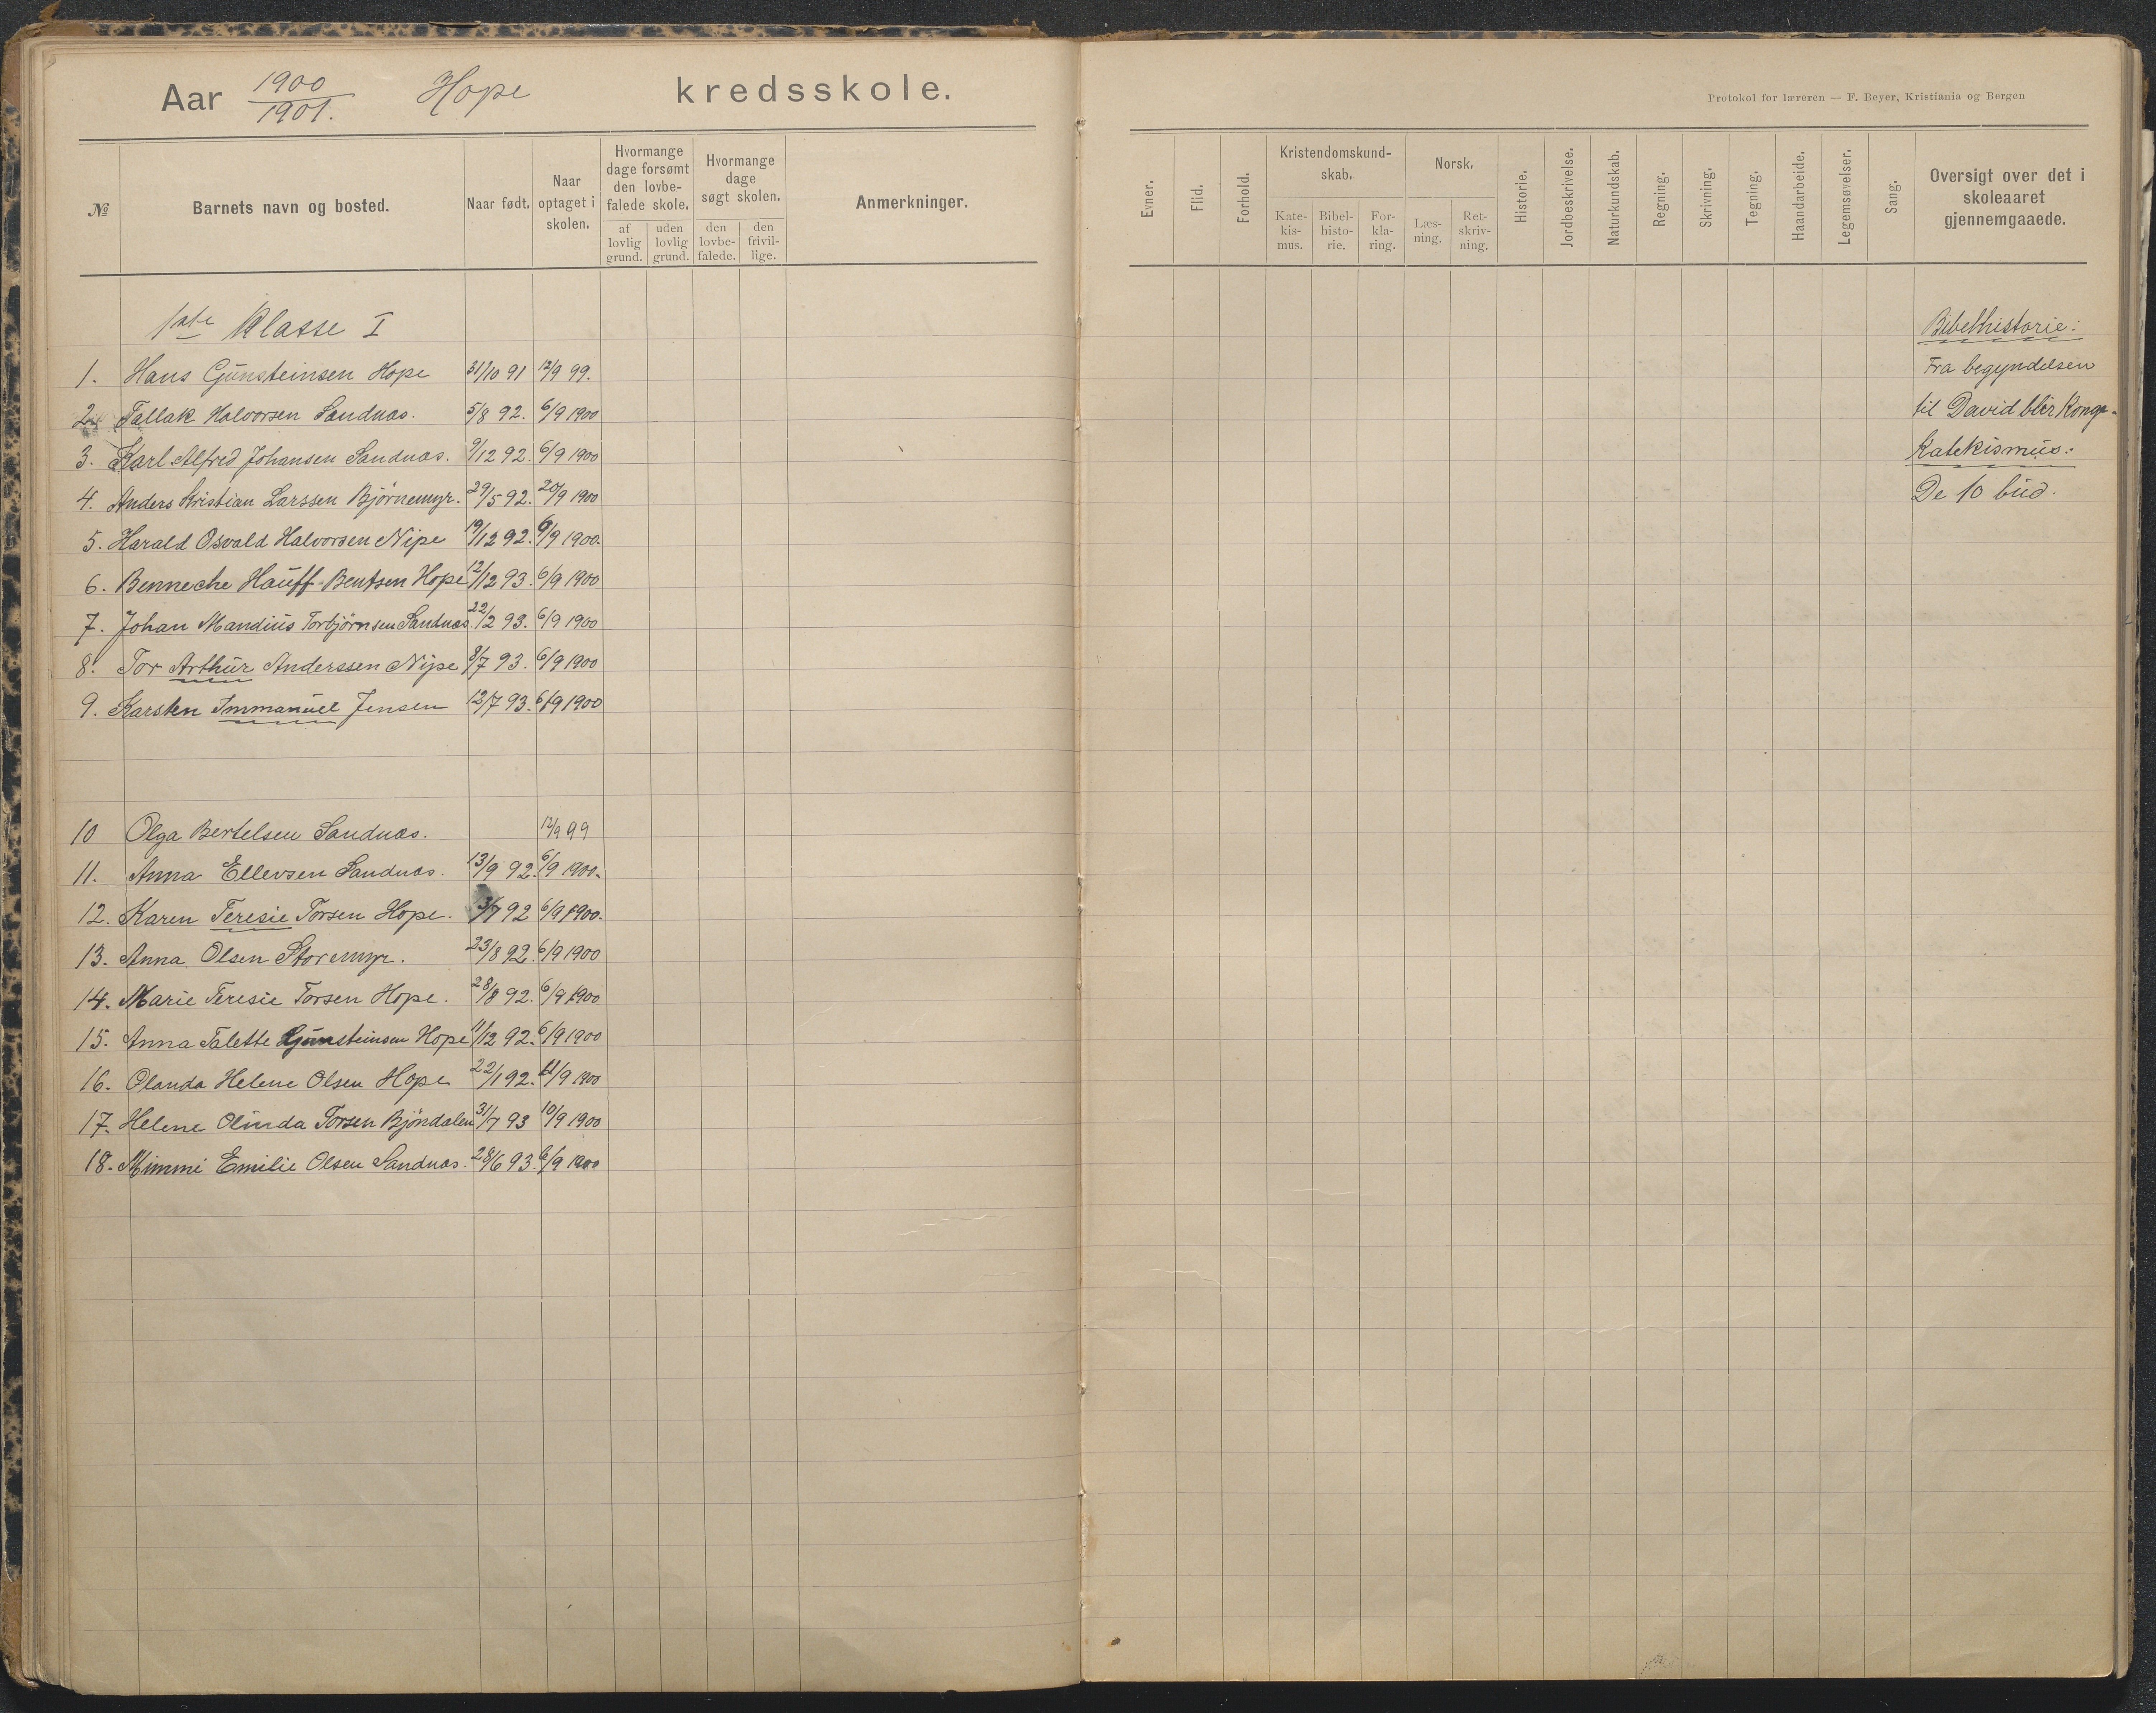 Aar 1900/1901. Hope kredsskole.
Protokol for læreren — F. Beyer, Kristiania og Bergen
№ Barnets navn og bosted. Naar født. Naar optaget i skolen. Hvormange dage forsømt den lovbefalede skole. af lovlig grund. uden lovlig grund. Hvormange dage søgt skolen. den lovbefalede. den frivillige. Anmerkninger.
Evner. Flid. Forhold. Kristendomskundskab. Katekismus. Bibelhistorie. Forklaring. Norsk. Læsning. Retskrivning. Historie. Jordbeskrivelse. Naturkundskab. Regning. Skrivning. Tegning. Haandarbeide. Legemsøvelser. Sang. Oversigt over det i skoleaaret gjennemgaaede.
1ste Klasse I
1. Hans Gunsteinsen Hope 31/10 91 12/9 99.
2. Tallak Halvorsen Sandnæs. 5/8 92. 6/9 1900
3. Karl Alfred Johansen Sandnæs. 9/12 92. 6/9 1900
4. Anders Kristian Larssen Bjørnemyr. 29/5 92. 20/9 1900
5. Harald Osvald Halvorsen Nipe 19/12 92. 6/9 1900.
6. Benneche Hauff Bentsen Hope 12/12 93. 6/9 1900
7. Johan Mandius Torbjørnsen Sandnæs 22/2 93. 6/9 1900
8. Tor Arthur Anderssen Nipe 8/7 93. 6/9 1900
9. Karsten Immanuel Jensen 12/7 93. 6/9 1900
10 Olga Bertelsen Sandnæs. 12/9 99
11. Anna Ellevsen Sandnæs. 13/9 92. 6/9 1900.
12. Karen Teresie Torsen Hope. 3/7 92 6/9 1900.
13. Anna Olsen Storemyr. 23/8 92. 6/9 1900
14. Marie Teresie Torsen Hope. 28/8 92. 6/9 1900
15. Anna Talette Gunsteinsen Hope 11/12 92. 6/9 1900
16. Olanda Helene Olsen Hope 22/1 92. 11/9 1900
17. Helene Olinda Torsen Bjöndalen 31/7 93 10/9 1900
18. Mimmi Emilie Olsen Sandnæs. 28/6 93. 6/9 1900
Bibelhistorie:
Fra begyndelsen
til David blir Konge.
Katekismus:
De 10 bud.